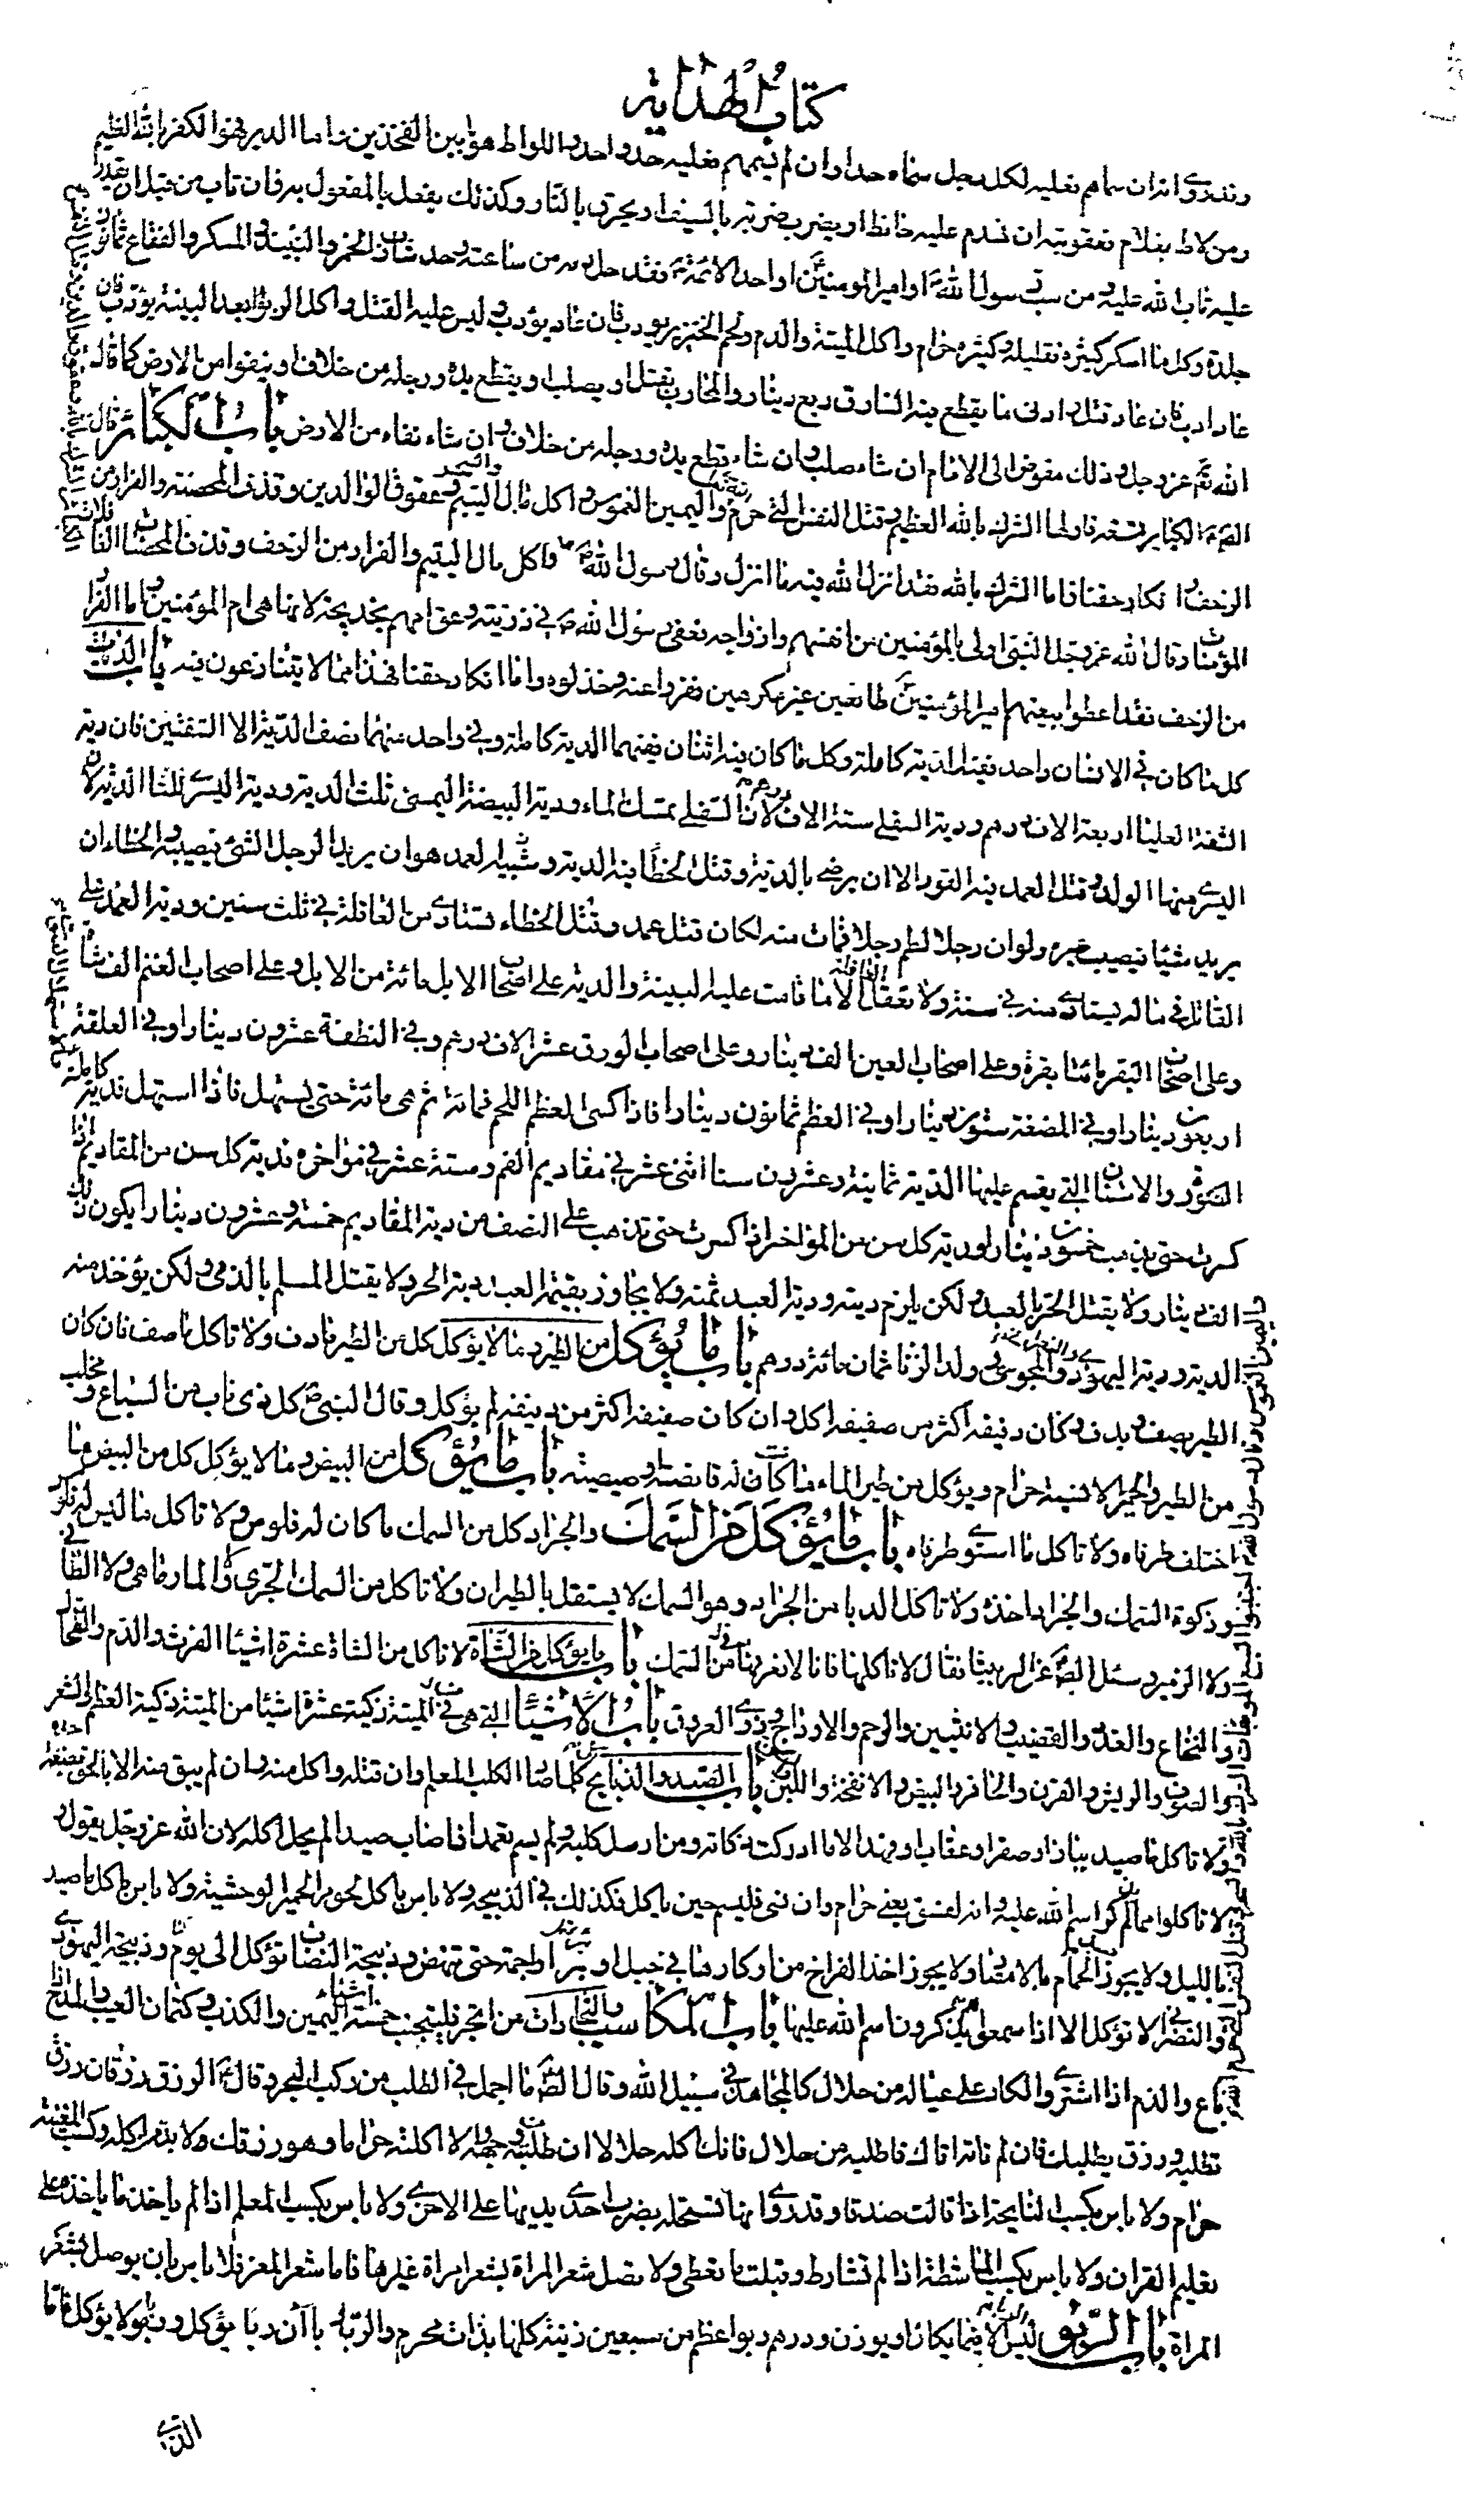 كتاب الهداية
وتدروى انه ان سماهم فعليه لكل رجل سماه حدا وان لم يسمهم فعليه حد واحد واللواط هو ما بين الفخذين فاما الدبر فهو الكفر بالله العظيم
ومن لاط بغلام فعقوبته ان يهدم عليه حائط او يضرب ضربة بالسيف او يحرق بالنار وكذلك يفعل بالمفعول به فان تاب من قبل ان
عليه تاب الله عليه ومن سب رسول الله او امير المومنين او احد الائمة فقد حل دمه من ساعته وحد شارب الخمر والنبيذ والمسكر والفقاع ثمانون
جلدة وكل ما اسكر كثيره فقليله وكثيره حرام واكل الميتة والدم ولحم الخنزير يودب فان عاد يؤدب وليس عليه القتل واكل الربوا بعد البينة يؤدب فان
عاد ادب فان عاد قتل وادنى ما يقطع فيه السارق ربع دينار والمحارب يقتل او يصلب او يقطع يده ورجله من خلاف او ينفوا من الارض كما قال
الله عز وجل وذلك مفوض الى الامام ان شاء صلب وان شاء قطع يده ورجله من خلاف وان شاء نفاه من الارض باب الكبائر قال
الكباير سبعة فاولها الشرك بالله العظيم وقتل النفس التي حرم واليمين الغموس واكل مال اليتيم وعقوق الوالدين وقذف المحصنة والفرار من
الزحف وانكار حقنا فاما الشرك بالله فقد انزل الله فيه ما انزل وقال رسول الله واكل مال اليتيم والفرار من الزحف وقذف المحصنات
المؤمنات وقال الله عز وجل النبي اولى بالمؤمنين من انفسهم وازواجه فعقوا رسول الله ص في ذريته وعق امهم بخديجة لانها هي ام المؤمنين واما الفرار
من الزحف فقد اعطوا بيعتهم امير المؤمنين طائعين غير مكرهين ففروا عنه وخذلوه واما انكار حقنا فهذا مما لا يتنازعون فيه باب الديات
كل ما كان في الانسان واحد ففيه الدية كاملة وكل ما كان فيه اثنان ففيهما الدية كاملة وفي واحد منهما نصف الدية الا الشفتين فان دية
الشفة العليا اربعة الاف درهم ودية السفلى ستة الاف درهم لان السفلى تمسك الماء ودية البيضة اليمنى ثلث الدية ودية اليسرى ثلثا الدية لان
اليسرى منها الولد وقتل العمد فيه القود الا ان يرضى بالدية وقتل الخطأ فيه الدية وشبيه العمد هو ان يريد الرجل الشئ فيصيبه والخطاء ان
يريد شيئا فيصيب غيره ولو ان رجلا لطم رجلا فمات منه لكان قتل عمد وقتل الخطاء تستادى من العاقلة في ثلث سنين ودية العمد على
القاتل في ماله يستادى منه في سنة ولا تعقل العاقلة الا ما قامت عليه البينة والدية على اصحاب الابل مائة من الابل وعلى اصحاب الغنم الف شاة
وعلى اصحاب البقر مائتا بقرة وعلى اصحاب العين الف دينار وعلى اصحاب الورق عشر الاف درهم وفي النطفة عشرون دينارا وفي العلقة
اربعون دينارا وفي المضغة ستون دينارا وفي العظم ثمانون دينارا فاذا كسى العظم اللحم فمائة ثم هي مائة حتى يستهل فاذا استهل فدية كاملة
والاسنان التي يقسم عليها الدية ثمانية وعشرون سنا اثنى عشر في مقاديم الفم وستة عشر في مواخره فدية كل سن من المقاديم اذا
كسرت حتى يذهب خمسون دينارا ودية كل سن من المواخر اذا كسرت حتى تذهب على النصف من دية المقاديم خمسة وعشرون دينارا يكون ذلك
الف دينار ولا يقتل الحر بالعبد ولكن يلزم ديته ودية العبد ثمنه ولا يجاوز بقيمة العبد دية الحر ولا يقتل المسلم بالذمي ولكن يؤخذ منه
الدية ودية اليهودي والمجوسي وولد الزنا ثمان مائة درهم باب ما يؤكل من الطير وما لا يؤكل كل من الطير ما دف ولا تاكل ما صف فان كان
الطير يصف ويدف وكان دفيفه اكثر من صفيفه اكل وان كان صفيفه اكثر من دفيفه لم يؤكل وقال النبي ص كل ذي ناب من السباع ومخلب
من الطير والحمير الانسية حرام ويؤكل من طير الماء ما كانت له قانصة او صيصية باب ما يؤكل من البيض وما لا يؤكل كل من البيض ما
اختلف طرفاه ولا تاكل ما استوى طرفاه باب ما يؤكل من السمك والجراد كل من السمك ما كان له فلوس ولا تاكل ما ليس له فلوس
وذكوة السمك والجراد اخذه ولا تاكل الدبا من الجراد وهو السمك لا يستقل بالطيران ولا تاكل من السمك الجرى والمارماهى ولا الطافى
ولا الزمير وسئل عن الربيثا فقال لا تاكلها فانا لا نعرفها من السمك باب ما يؤكل من الشاة لا تاكل من الشاة عشرة اشيئا الفرث والدم والطحال
والنخاع والغدد والقضيب والانثيين والرحم والاوداج وروى العروق باب الاشيئا التي هي من الميتة ذكية عشرة اشيئا من الميتة ذكية العظم والشعر
والصوف والريش والقرن والحافر والبيض والانفخة واللبن باب الصيد والذبايح كل ما صاد الكلب المعلم وان قتله واكل منه وان لم يبق منه الا
ولا تاكل ما صيد بباز او صقر او عقاب او فهد الا ما ادركت ذكاته ومن ارسل كلبه ولم يسم تعمدا فاصاب صيدا لم يحل اكله لان الله عز وجل يقول
ولا تاكلوا مما لم يذكر اسم الله عليه وانه لفسق يعني حرام وان نسى فليسم حين ياكل فكذلك في الذبيحة ولا باس باكل لحوم الحمير الوحشية ولا باس باكل ما صيد
بالليل ولا يجوز الحمام بالامصار ولا يجوز اخذ الفراخ من اوكارها في جبل او بئر او اجمة حتى تنهض وذبيحة اليهودى
والنصرانى لا تؤكل الا اذا سمعوا يذكرون اسم الله عليها باب المكاسب والتجارات من اتجر فليجتنب خمسة اشيئا اليمين والكذب وكتمان العيب والمدح اذا
باع والذم اذا اشترى والكاد على عياله من حلال كالمجاهد في سبيل الله وقال ما اجمل في الطلب من ركب البحر وقال الرزق رزقان رزق
تطلبه ورزق يطلبك فان لم تاته اتاك فاطلبه من حلال فانك اكله حلالا ان طلبته من وجهه والا اكلته حراما وهو رزقك ولا بد من اكله وكسب المغنية
حرام ولا باس بكسب النايحة اذا قالت صدقا وقد روى انها تستحله بضرب احدى يديها على الاخرى ولا باس بكسب المعلم اذا لم ياخذ ما ياخذ على
تعليم القران ولا باس بكسب الماشطة اذا لم تشارط وقبلت ما تعطى ولا تصل شعر المراة بشعر امراة غيرها فاما شعر المعز فلا باس بان يوصل بشعر
المراة باب الربوا ليس الربوا الا فيما يكال او يوزن ودرهم ربوا اعظم من سبعين زنية كلها بذات محرم والربوا رباآن ربا يؤكل وربوا لا يؤكل فاما
الذي